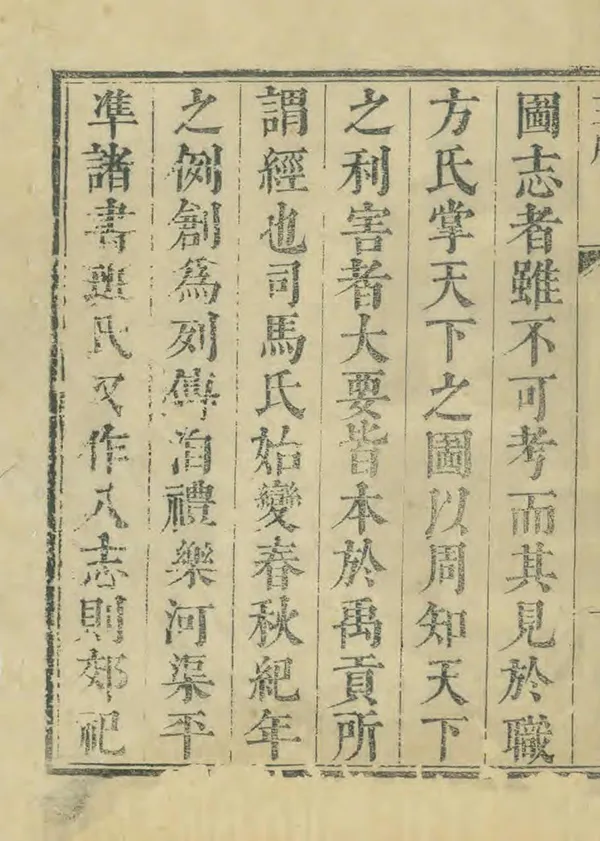 圖志者雖不可考而其見於職
方氏掌天下之圖以周知天下
之利害者大要皆本於禹貢所
謂經也司馬氏始變春秋紀年
之例創爲列傳洎禮樂河渠平
凖諸書班氏又作八志則郊祀